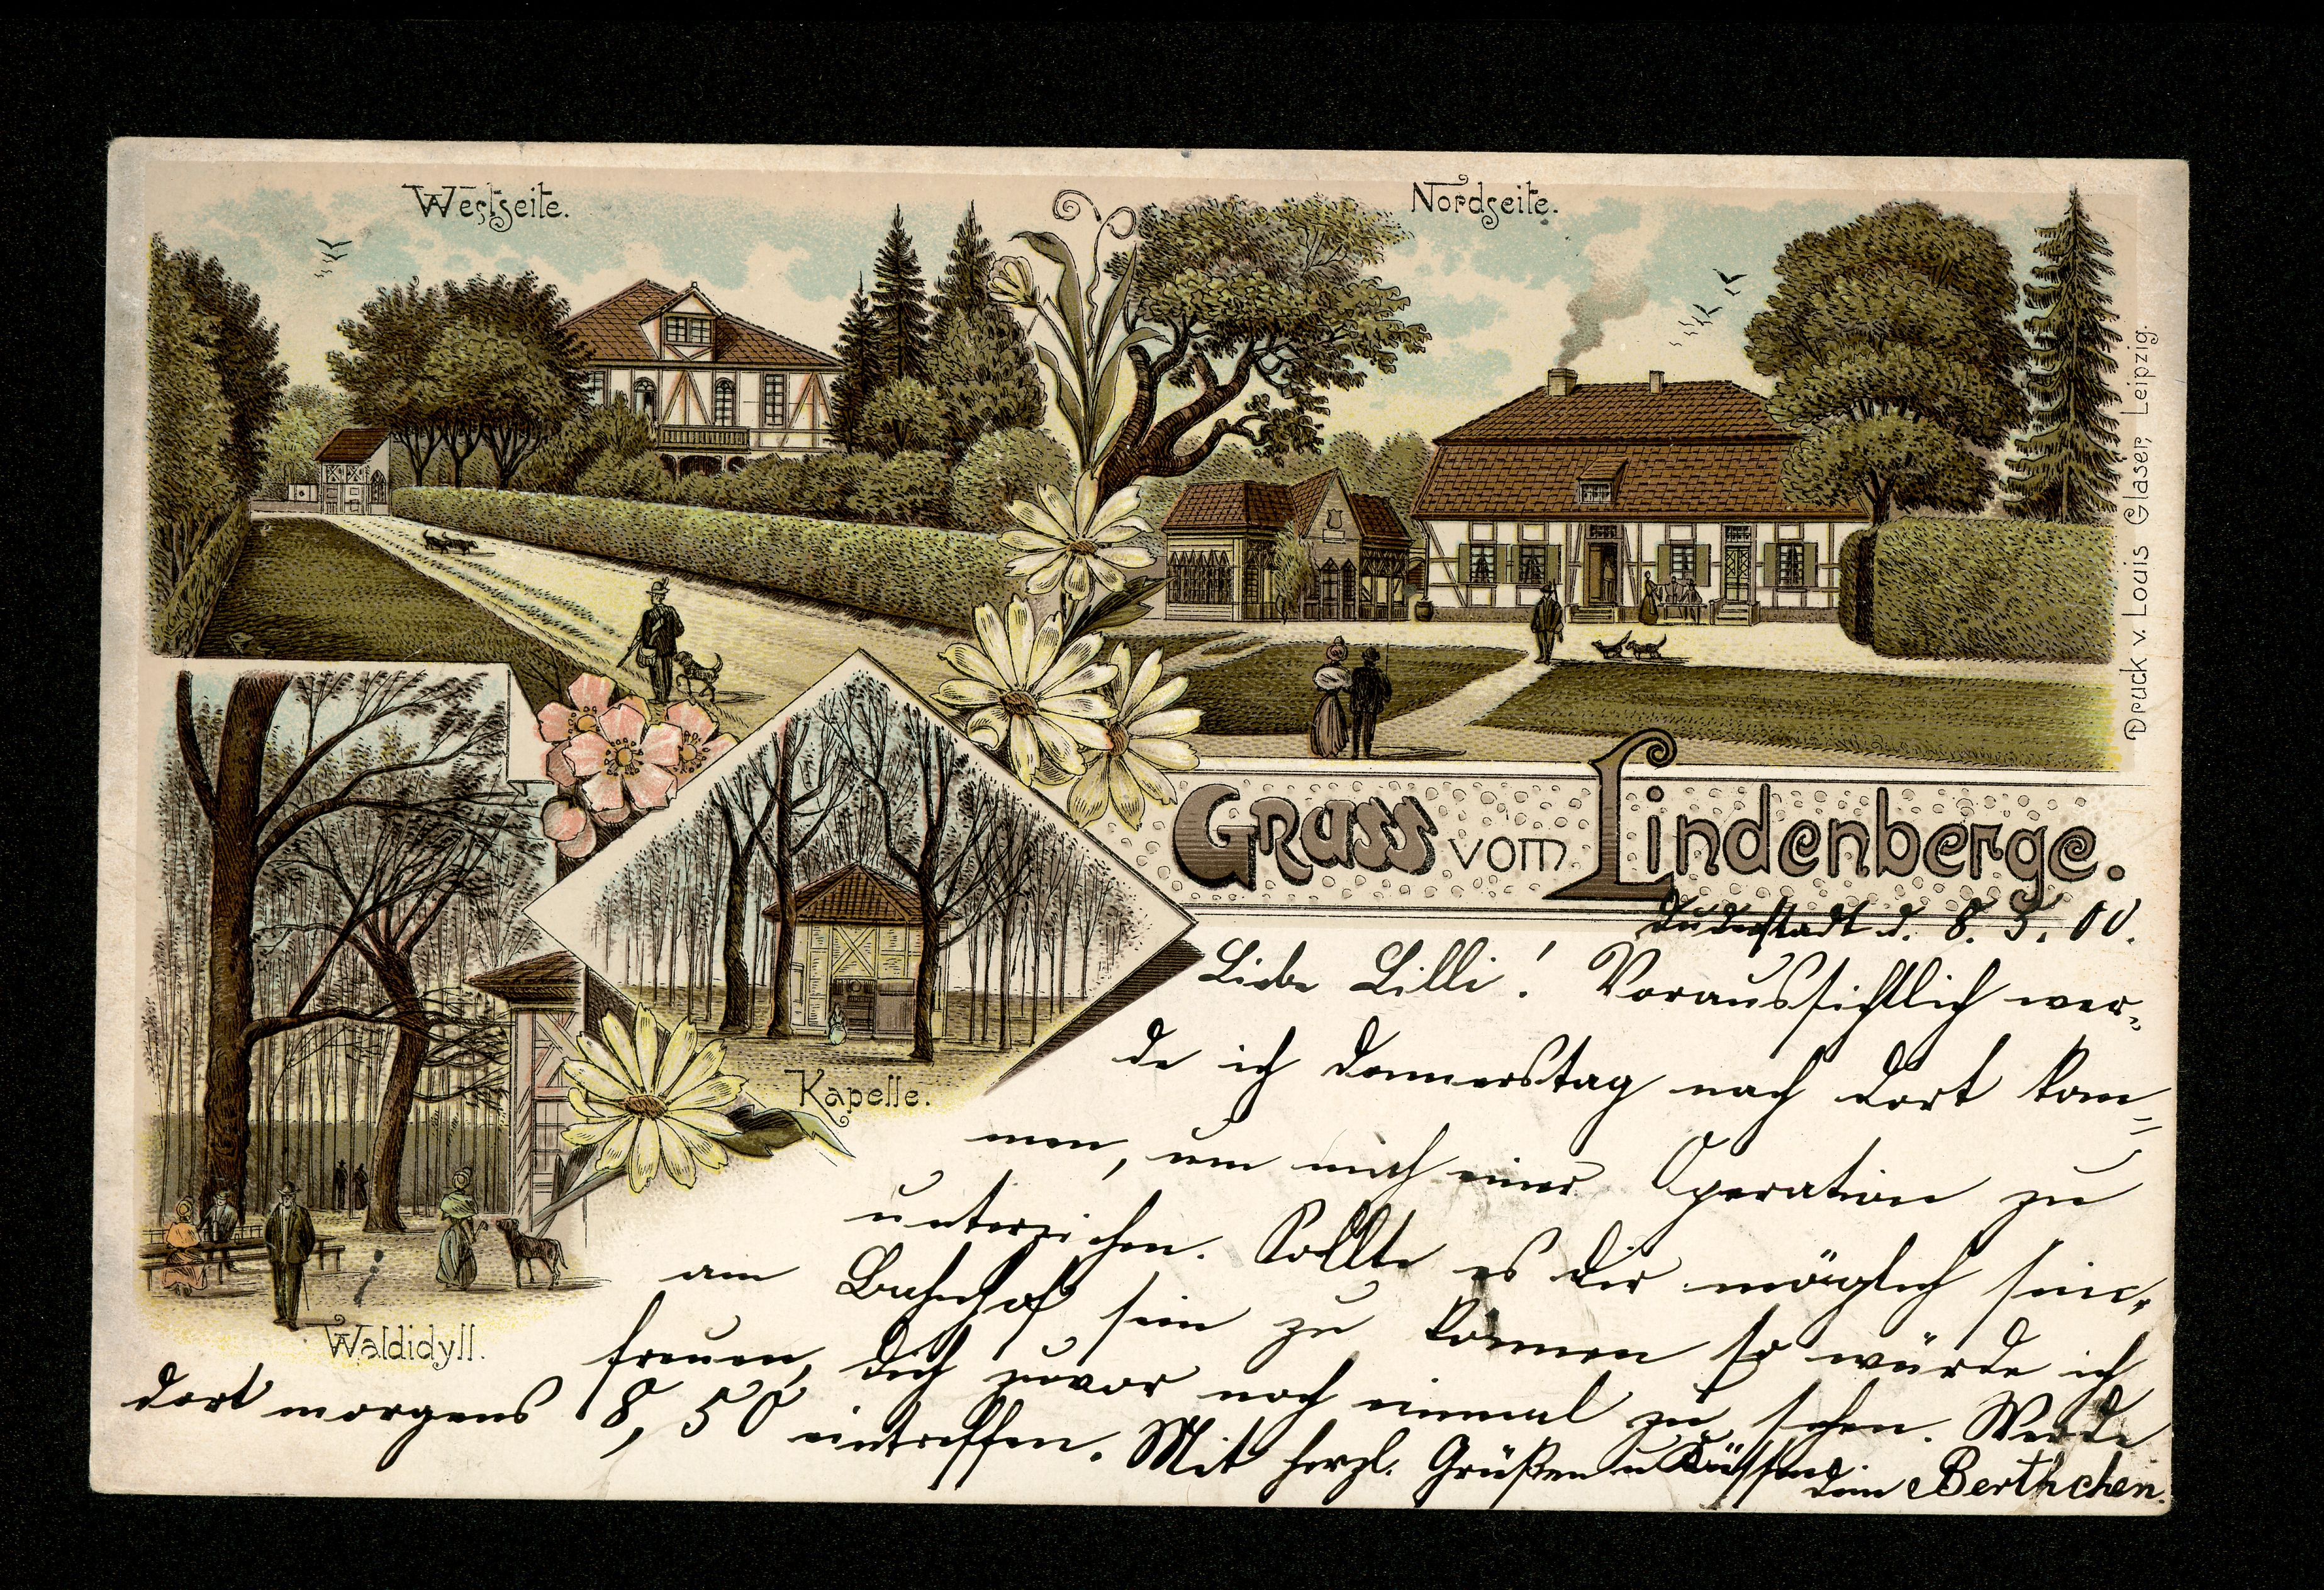 Westseite.
Nordseite.
Druck v. Louis Glaser, Leipzig.
Gruss vom Lindenberge.
Kapelle.
Waldidyll.
Duderstadt d. 8. 5. 00.
Liebe Lilli! Voraussichtlich wer-
de ich Donnerstag nach dort kom-
men, um mich einer Operation zu
unterziehen. Sollte es dir möglich sein,
am Bahnhof sein zu können so würde ich
freuen, dich zuvor noch einmal zu sehen. Werde
dort morgens 8,50 eintreffen. Mit herzl. Grüßen u Küssen
dein Berthchen.